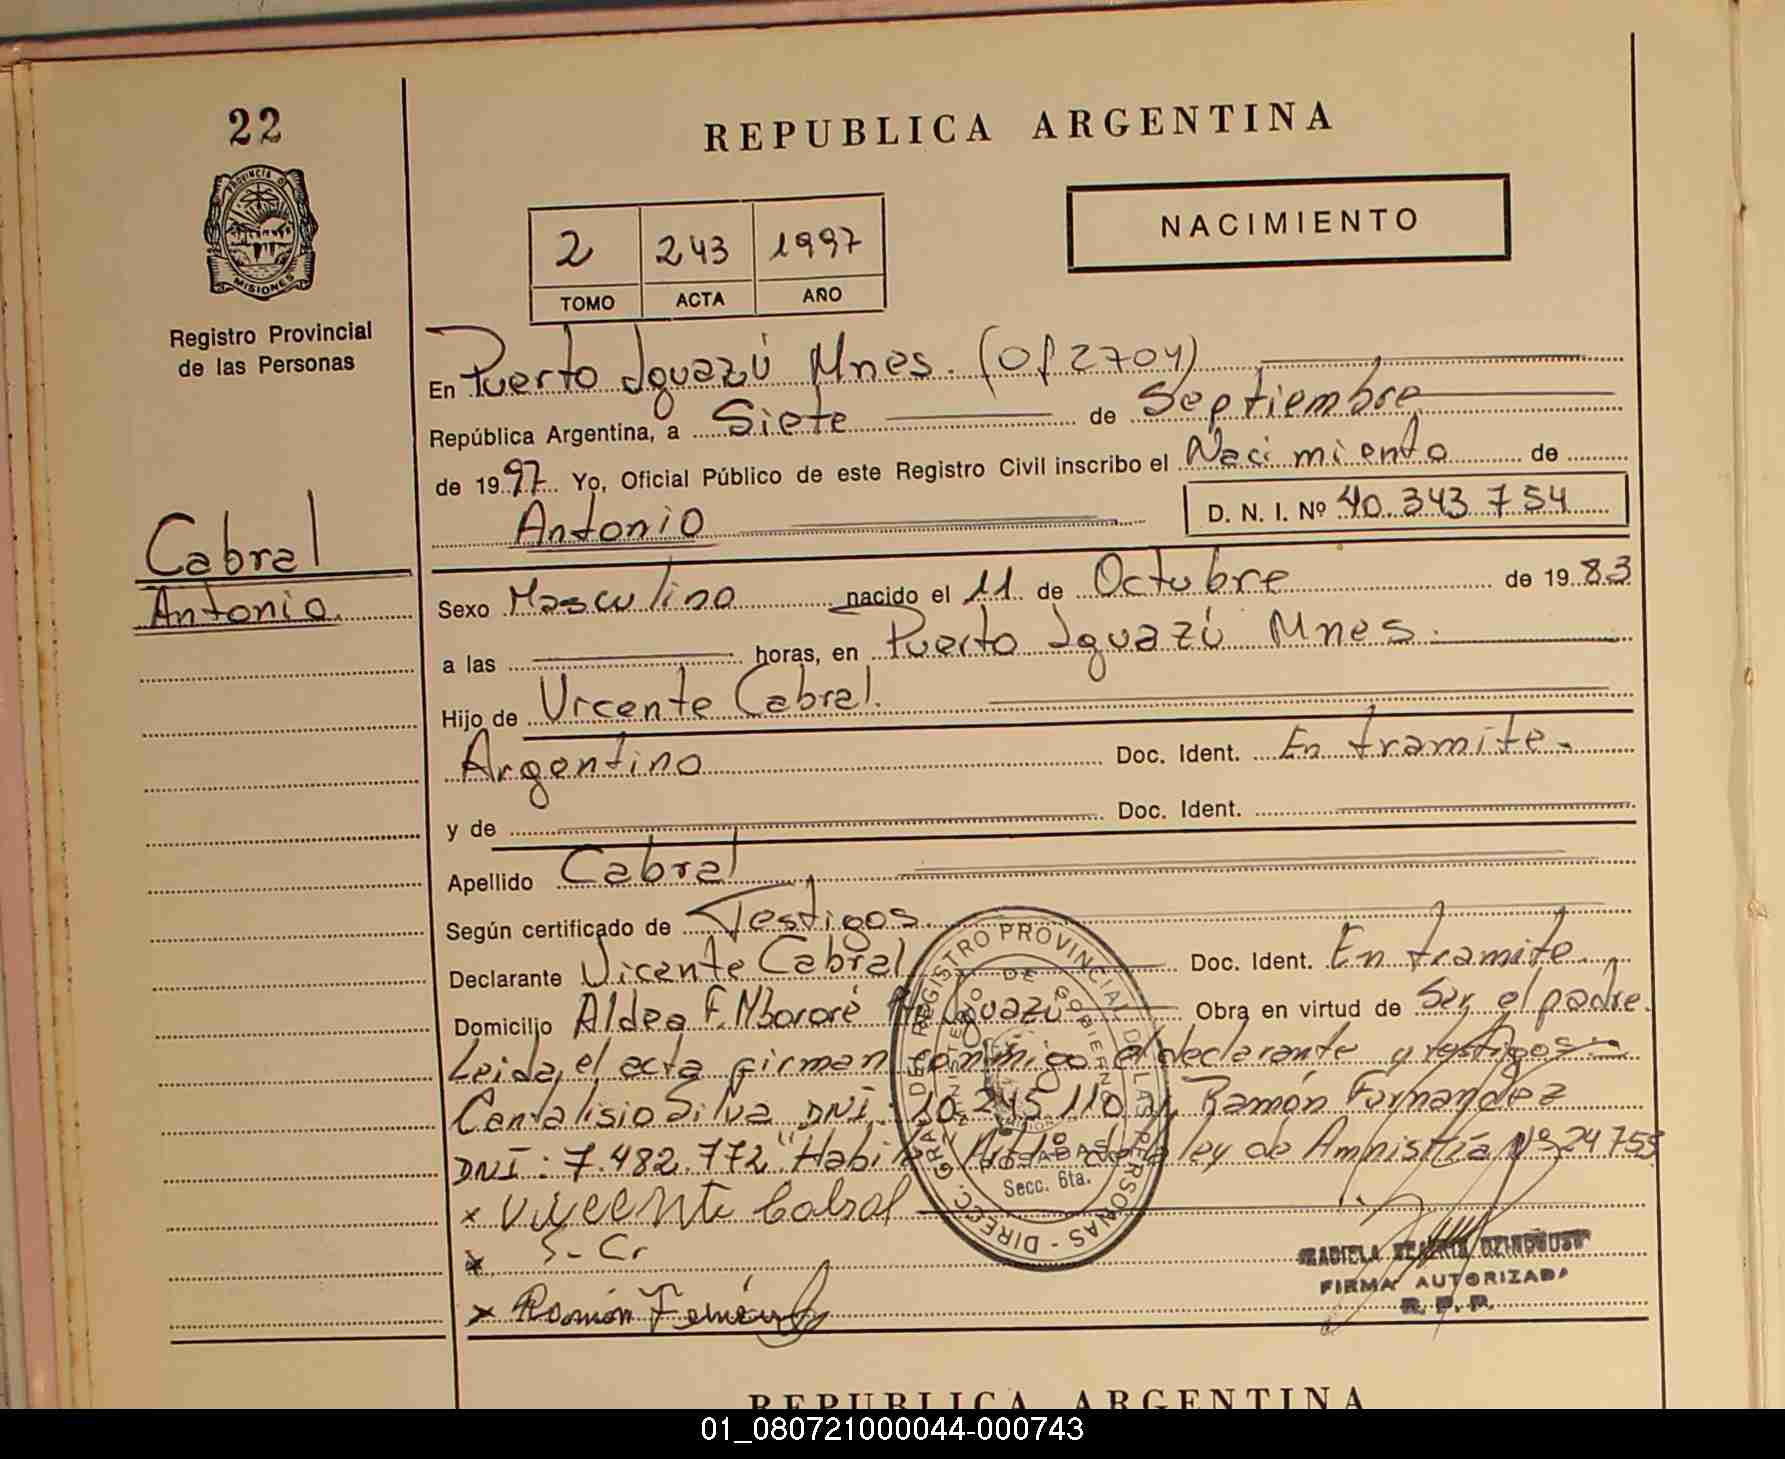 22
PROVINCIA DE
MISIONES
Registro Provincial
de las Personas
Cabral
Antonio.
REPUBLICA ARGENTINA
NACIMIENTO
2 243 1997
TOMO ACTA AÑO
En Puerto Iguazú Mnes. (Of 2704)
República Argentina, a Siete de Septiembre
de 1997. Yo, Oficial Público de este Registro Civil inscribo el Nacimiento de
Antonio D. N. I. Nº 40.343.754
Sexo Masculino nacido el 11 de Octubre de 1983
a las horas, en Puerto Iguazú Mnes.
Hijo de Vicente Cabral.
Argentino Doc. Ident. En tramite.
y de Doc. Ident.
Apellido Cabral
Según certificado de Testigos
Declarante Vicente Cabral Doc. Ident. En tramite.
Domicilio Aldea F. Mbororé Iguazú Obra en virtud de Ser el padre.
Leida el acta firman conmigo el declarante y testigos
Cantalisio Silva DNI: 10.245.110 y Ramón Fernandez
DNI: 7.482.772 "Habil. de la ley de Amnistía Nº 24755
x Vicente Cabral
x S-Cr
x Ramón Fernández
REGISTRO PROVINCIAL DE LAS PERSONAS - DIRECC. GRAL. DEL
MINISTERIO DE GOBIERNO
MISIONES
POSADAS
Secc. 6ta.
FIRMA AUTORIZADA
R. P. P.
REPUBLICA ARGENTINA
01_080721000044-000743